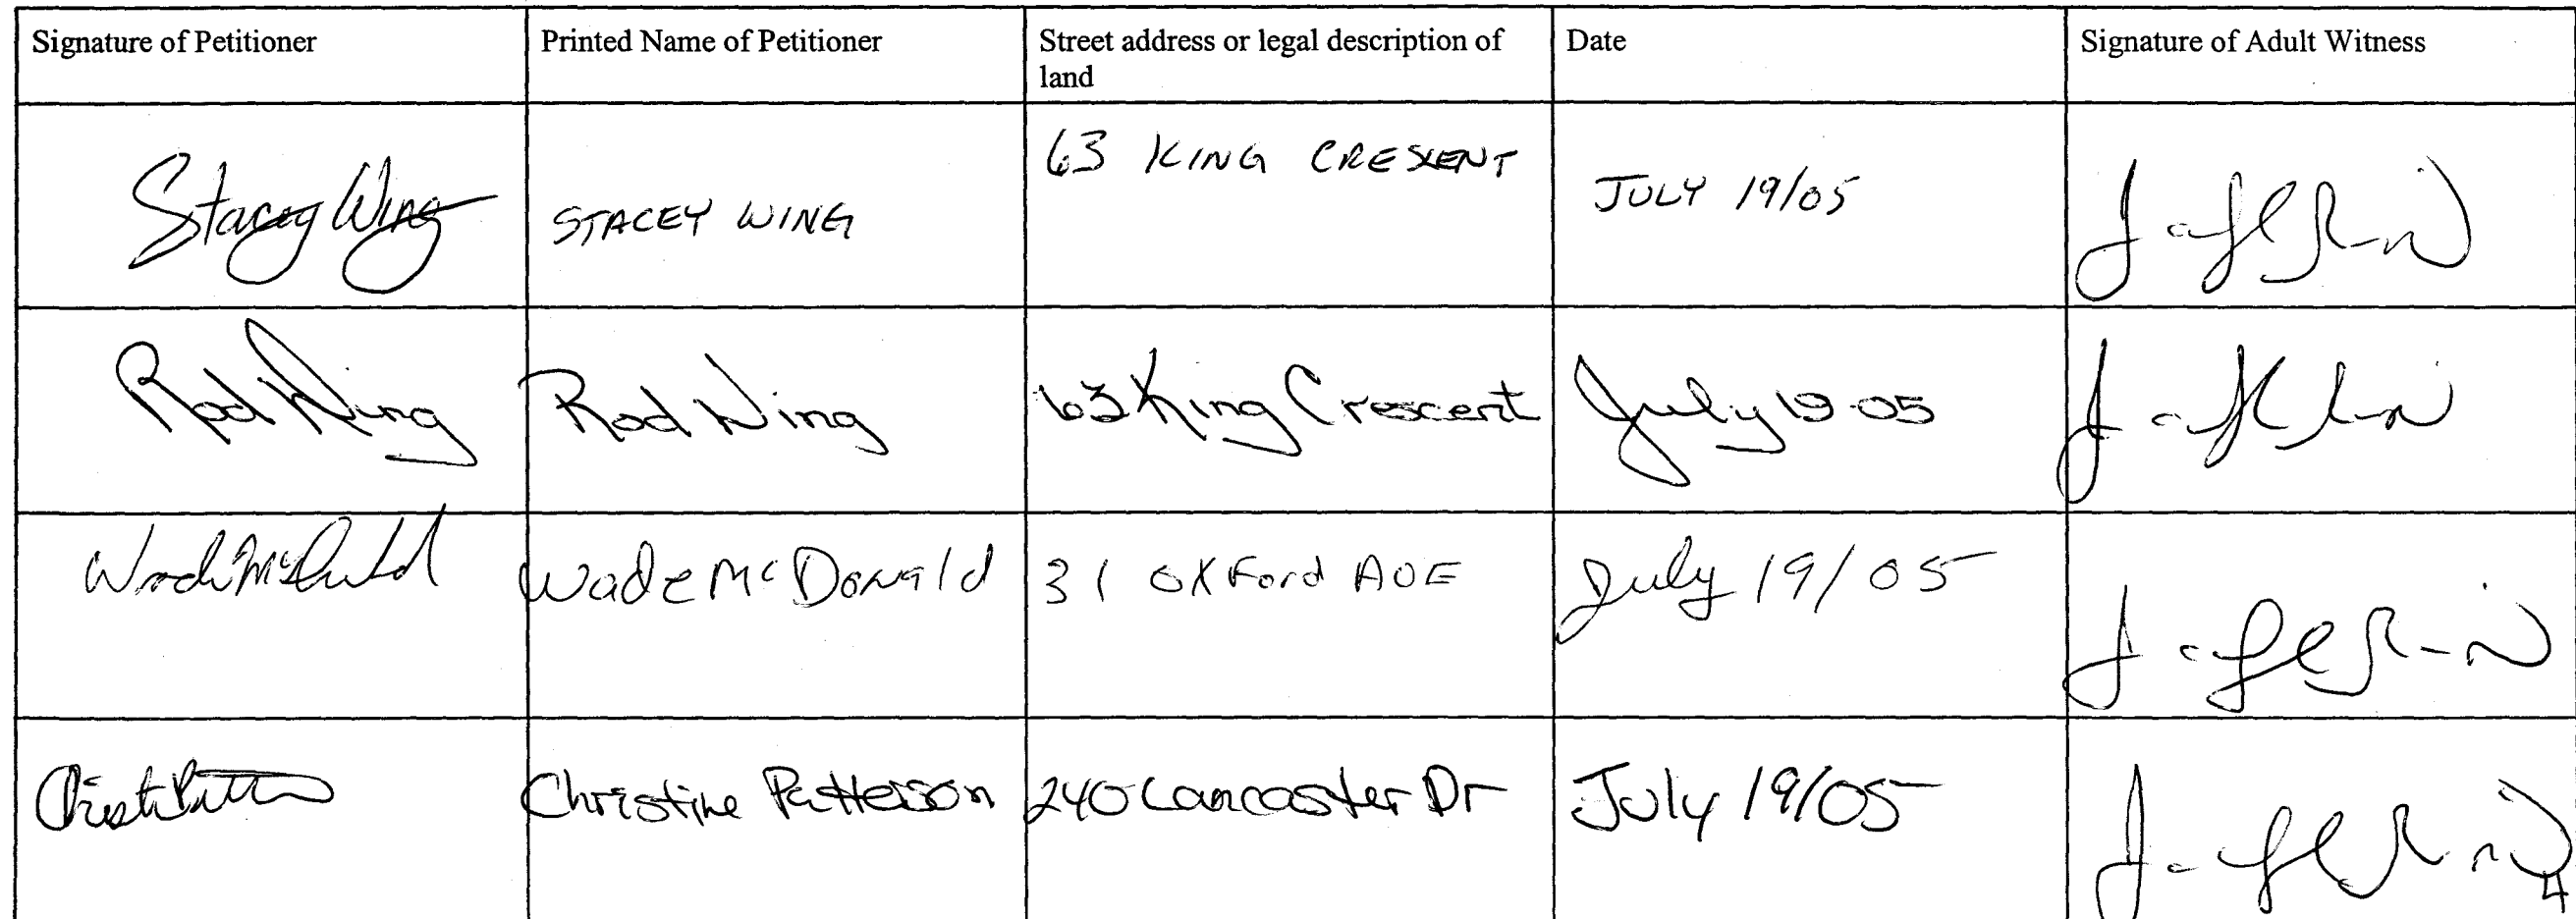 Signature of Petitioner
Printed Name of Petitioner
Street address or legal description of
land
Date
Signature of Adult Witness
Stacey Wing
STACEY WING
63 KING CRESCENT
JULY 19/05
Rod Wing
Rod Wing
63 King Crescent
July 19-05
Wade McDonald
Wade McDonald
31 OXFord AVE
July 19/05
Christine Patterson
240 Lancaster Dr
July 19/05
4